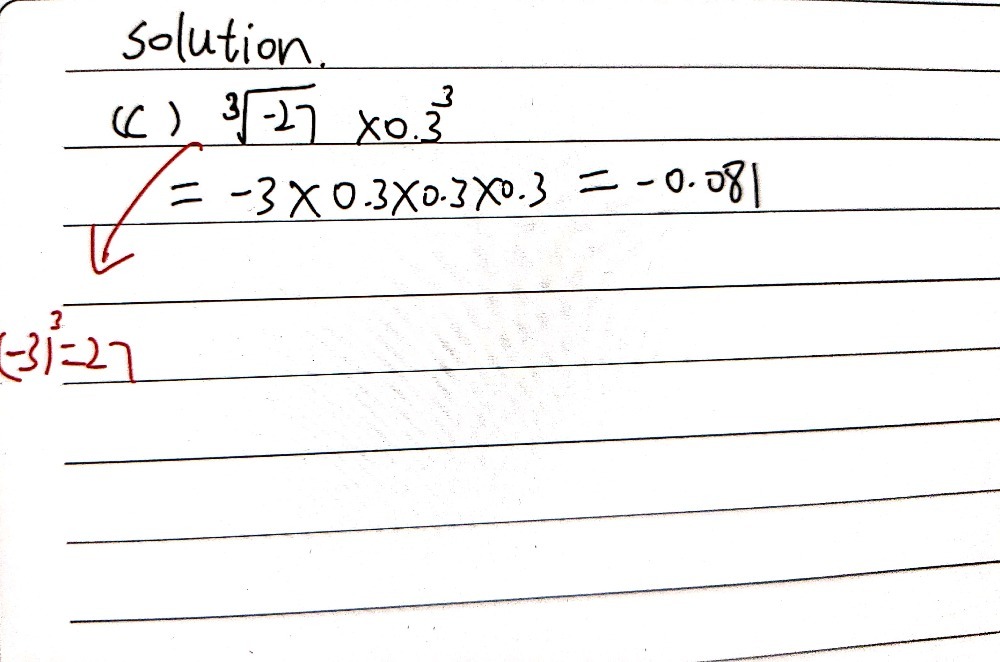 solution.
(c) ∛-27 ×0.3³
= -3×0.3×0.3×0.3 = -0.081
(-3)³=27